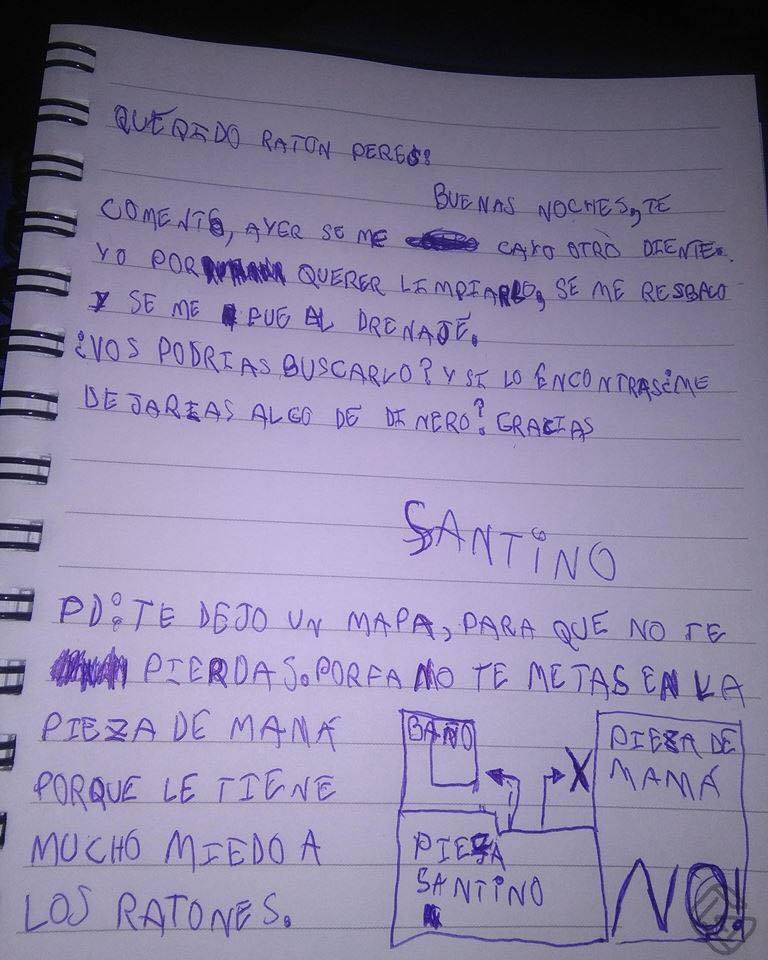 QUERIDO RATON PERES:
BUENAS NOCHES, TE
COMENTO, AYER SE ME CAYO OTRO DIENTE.
YO POR QUERER LIMPIARLO, SE ME RESBALO
Y SE ME FUE AL DRENAJE.
¿VOS PODRIAS BUSCARLO? Y SI LO ENCONTRAS ¿ME
DEJARIAS ALGO DE DINERO? GRACIAS
SANTINO
PD: TE DEJO UN MAPA, PARA QUE NO TE
PIERDAS. PORFA NO TE METAS EN LA
PIEZA DE MAMÁ
PORQUE LE TIENE
MUCHO MIEDO A
LOS RATONES.
BAÑO
X
PIEZA DE
MAMÁ
PIEZA
SANTINO
NO!